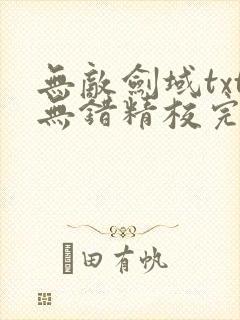 無敵劍域txt
無錯精校完
田有帆